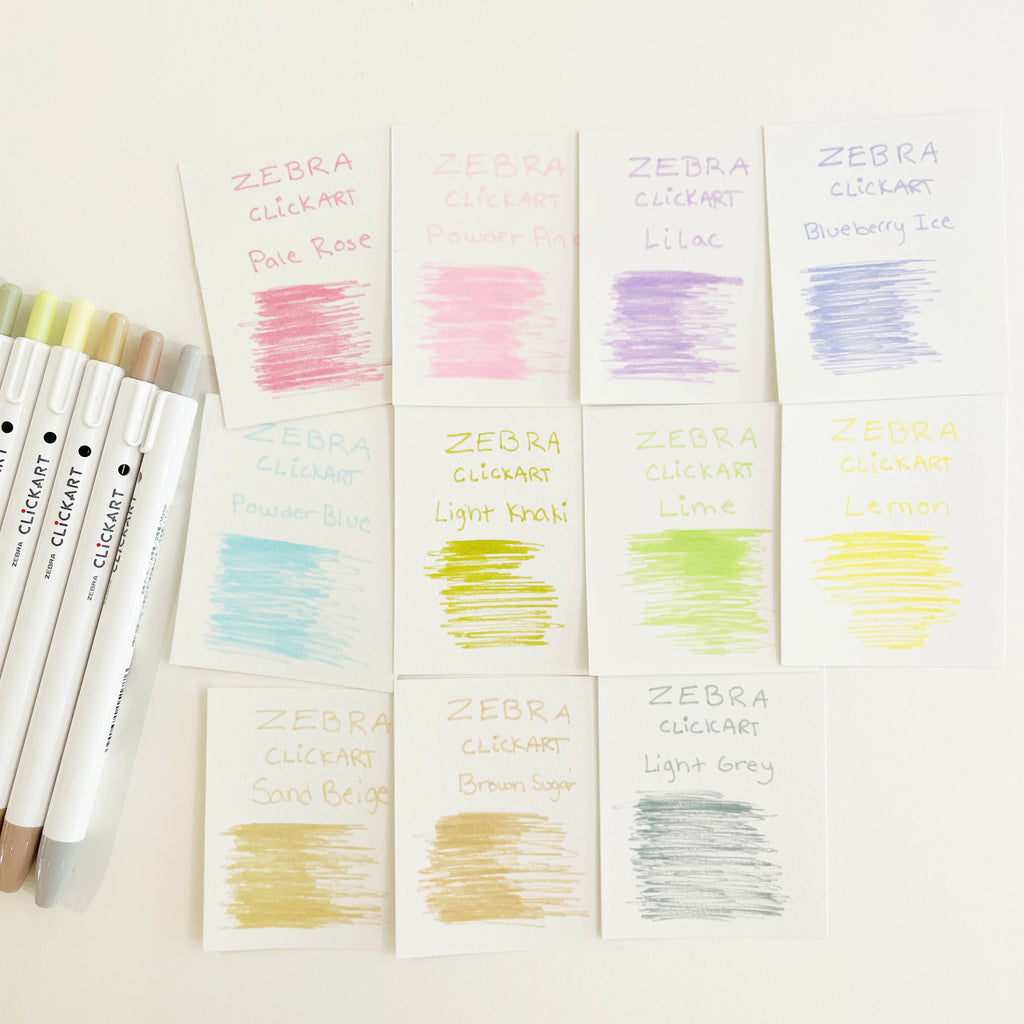 ZEBRA
CLiCKART
Pale Rose
ZEBRA
CLiCKART
Powder Pink
ZEBRA
CLiCKART
Lilac
ZEBRA
CLiCKART
Blueberry Ice
ZEBRA
CLiCKART
Powder Blue
ZEBRA
CLiCKART
Light Khaki
ZEBRA
CLiCKART
Lime
ZEBRA
CLiCKART
Lemon
ZEBRA
CLiCKART
Sand Beige
ZEBRA
CLiCKART
Brown Sugar
ZEBRA
CLiCKART
Light Grey
ZEBRA CLiCKART
ZEBRA CLiCKART
ZEBRA CLiCKART